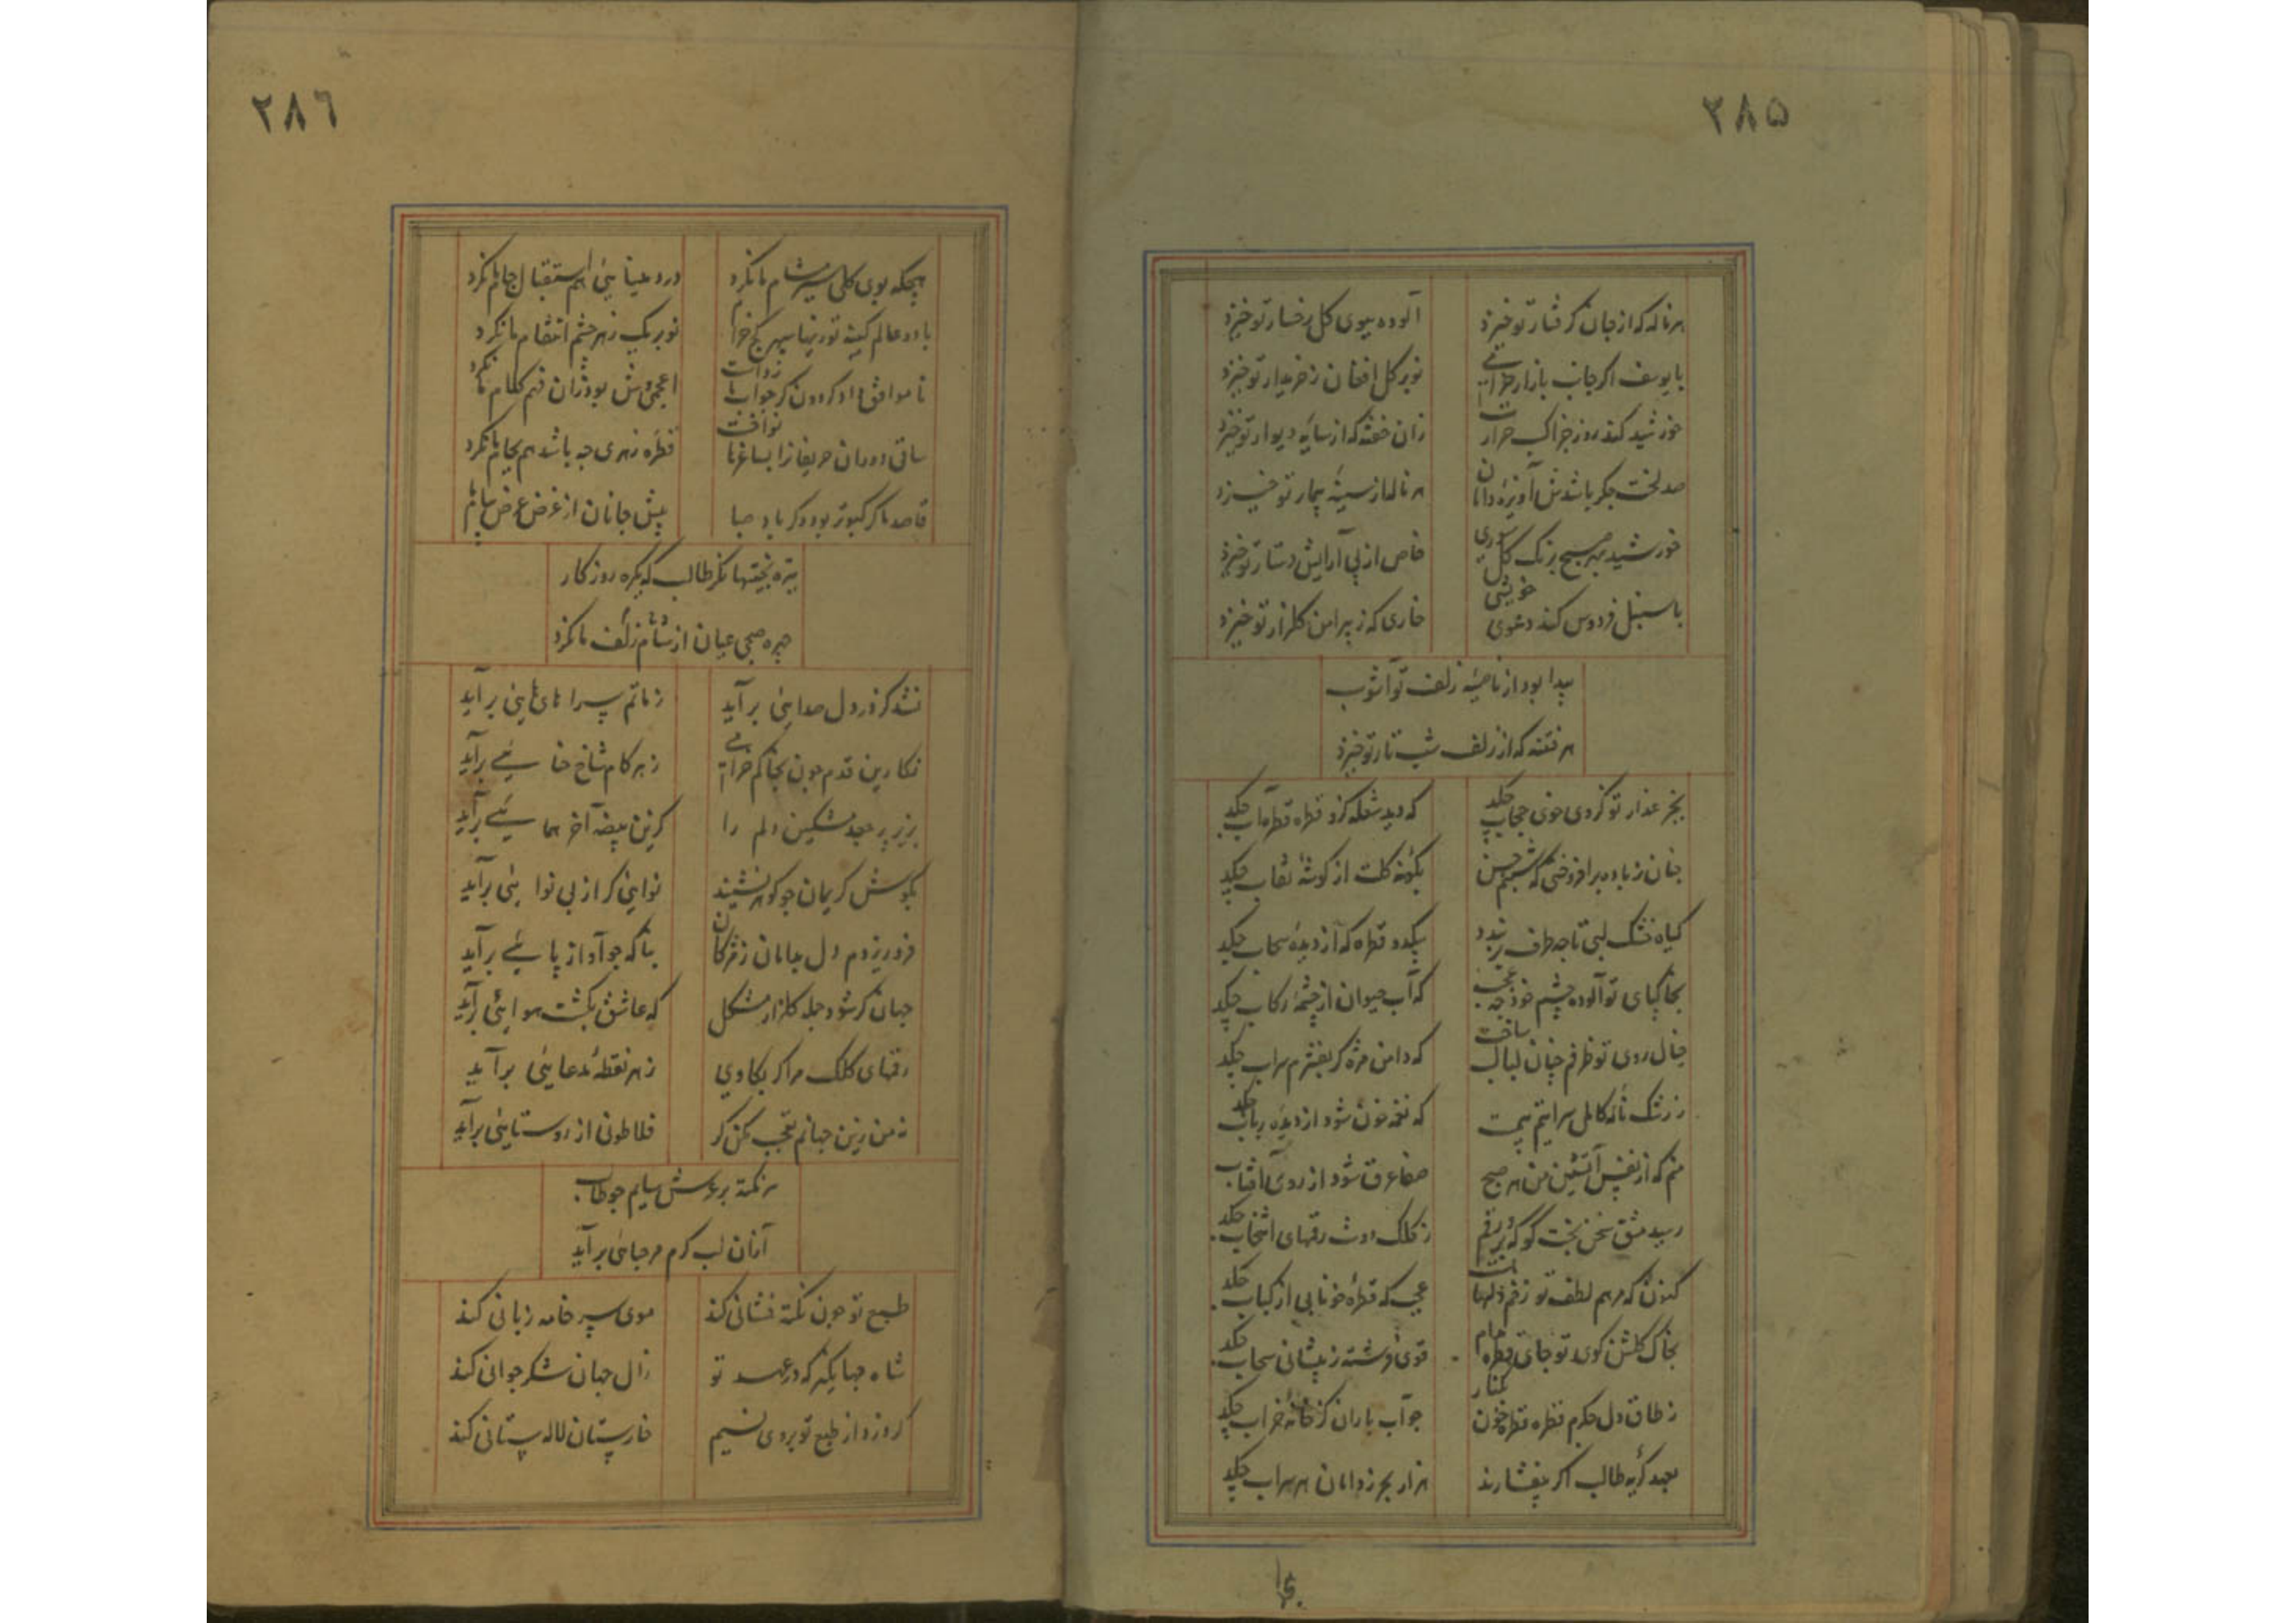 ۲۸۵
هر ناله که از جان گرفتار تو خیزد
آلوده ببوی گل رخسار تو خیزد
با یوسف اگر جانب بازار خرامی
نو بر گل افغان ز خریدار تو خیزد
خورشید کند روز جزا کسب حرارت
زان خفته که از سایه دیوار تو خیزد
صد لخت جگر باشدش آویزه دامان
هر ناله از سینه بیمار تو خیزد
خورشید بهر صبح برنگ گل سوری
خاص از پی آرایش دستار تو خیزد
با سنبل فردوس کند دعوی خویشی
خاری که ز پیرامن گلزار تو خیزد
پیدا بود از ناصیه زلف تو آشوب
هر فتنه که از زلف شب تار تو خیزد
بجز عذار تو کز وی خوی حجاب چکد
که دید شعله کزو قطره قطره آب چکد
چنان ز باده برافروختی که شبنم حسن
بگونه گلت از گوشه نقاب چکد
گیاه خشک لبی تا چه طرف بربندد
بیکدو قطره که از دیده سحاب چکد
بخاکپای تو آلوده چشم خود چه عجب
که آب حیوان از چشمه رکاب چکد
خیال روی تو ظرفم چنان لبالب ساخت
که دامن مژه گر بفشرم سراب چکد
ز رشک ناله کاملی سرایتم
که نغمه خون شود از دیده رباب چکد
منم که از نفس آتشین من هر صبح
صفا عرق شود از روی آفتاب چکد
رسید مشق سخن بخت گو که بر ورقم
ز کلک دوست رقمهای انتخاب چکد
کنون که مرهم لطف تو زخم دلها بست
عجب که قطره خونابی از کباب چکد
بخاک گلشن کوی تو جای قطره مدام
خوی فرشته ز پیشانی سحاب چکد
ز طاق دل جگرم قطره قطره خون بکنار
چو آب باران کز خانه خراب چکد
بعید گریه طالب اگر بیفشارند
هزار بحر ز دامان هر سراب چکد
۲۸۶
هیچگه بوی گلی سیر مشام ما نکرد
درد عینائی هم استقبال جام ما نکرد
با دو عالم کینه تو زینها سپهر کج خرام
نوبر یک زهر چشم انتقام ما نکرد
نا موافق داد گردون گر جواب ما رواست
اعجمی وش بود زان فهم کلام ما نکرد
ساقی دوران حریفان را بساغرها نواخت
قطره زهری چه باشد هم بجام ما نکرد
قاصد ما گر کبوتر بود و گر باد صبا
پیش جانان از غرض عرض پیام
تیره بختیها نگر طالب که یکره روزگار
چهره صبحی عیان از شام زلف ما نکرد
نشد کز در دل صدائی بر آید
ز ماتم سرا های هائی بر آید
نگارین قدم چون بخاکم خرامی
ز هر گام شاخ حنائی بر آید
بزیر پر جعد مشکین دلم را
کزین بیضه آخر همائی بر آید
بگوش کریمان چو گوهر نشیند
نوائی گر از بی نوائی بر آید
فرو ریزدم دل بدامان ز مژگان
بناگه چو آواز پائی بر آید
جهان گر شود جمله گلزار مشکل
که عاشق بگشت هوائی بر آید
رقمهای کلک مرا گر بکاوی
ز هر نقطه مدعائی بر آید
ز من زین جهانم تعجب مکن گر
فلاطونی از روستائی بر آید
سر نکته بر عرش سایم چو طالب
از آن لب گرم مرحبائی بر آید
طبع تو چون نکته فشانی کند
موی سر خامه زبانی کند
شاه جهانگیر که در عهد تو
زال جهان شکر جوانی کند
گر وزد از طبع تو بروی نسیم
خارستان لاله ستانی کند